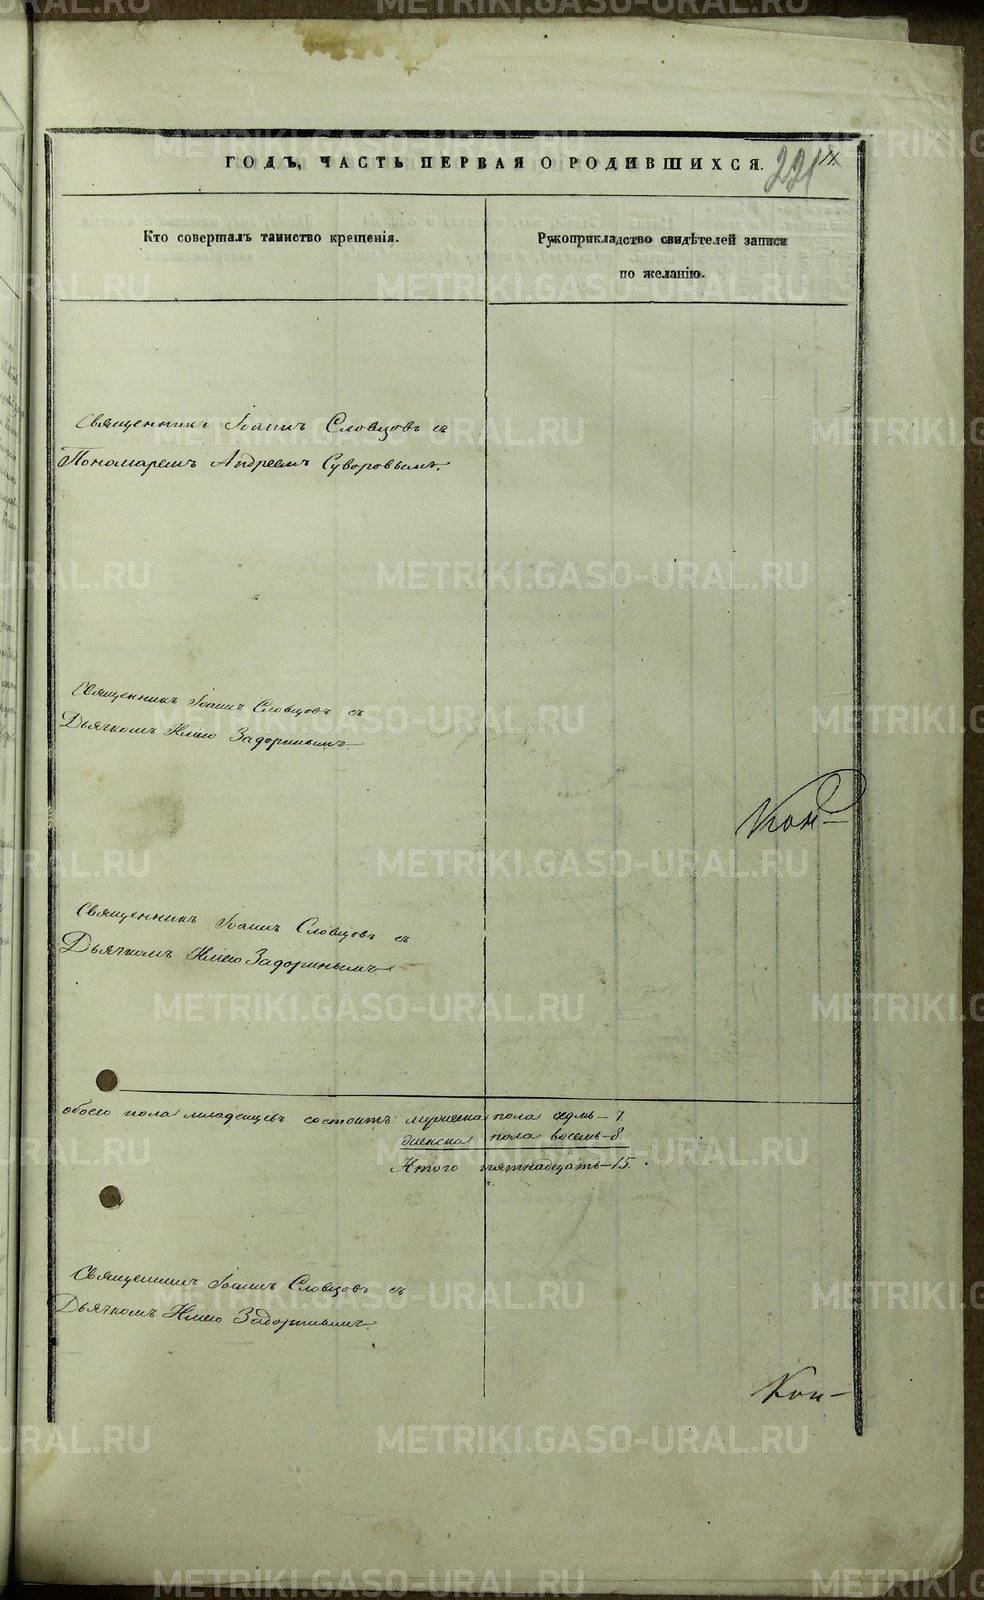 ГОДЪ, ЧАСТЬ ПЕРВАЯ О РОДИВШИХСЯ.
221
Кто совершалъ таинство крещенія.
Рукоприкладство свидѣтелей записи
по желанію.
Священникъ Іоаннъ Словцовъ съ
Пономаремъ Андреемъ Суворовымъ.
Священникъ Іоаннъ Словцовъ съ
Дьячкомъ Иліею Задоринымъ
Священникъ Іоаннъ Словцовъ съ
Дьячкомъ Иліею Задоринымъ
обоего пола младенцевъ состоитъ: мужеска пола седмь – 7
женска пола восемь – 8.
Итого пятнадцать – 15.
Священникъ Іоаннъ Словцовъ съ
Дьячкомъ Иліею Задоринымъ.
METRIKI.GASO-URAL.RU